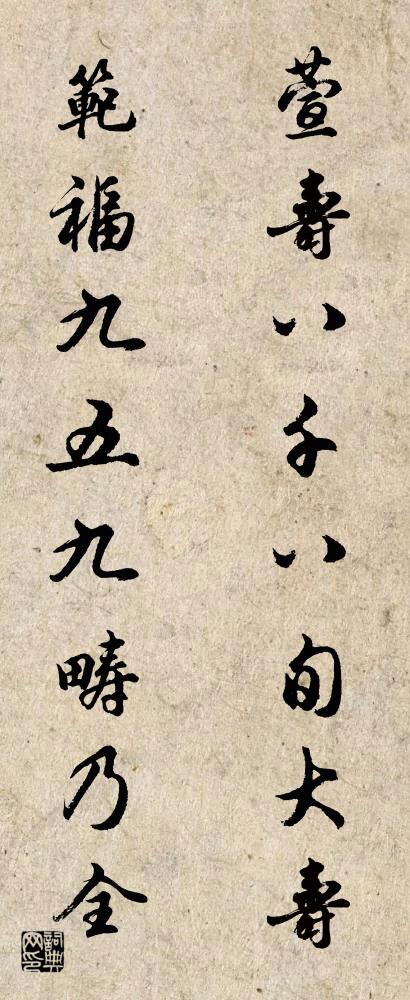 萱壽八千八旬大壽
範福九五九疇乃全
詞典網印